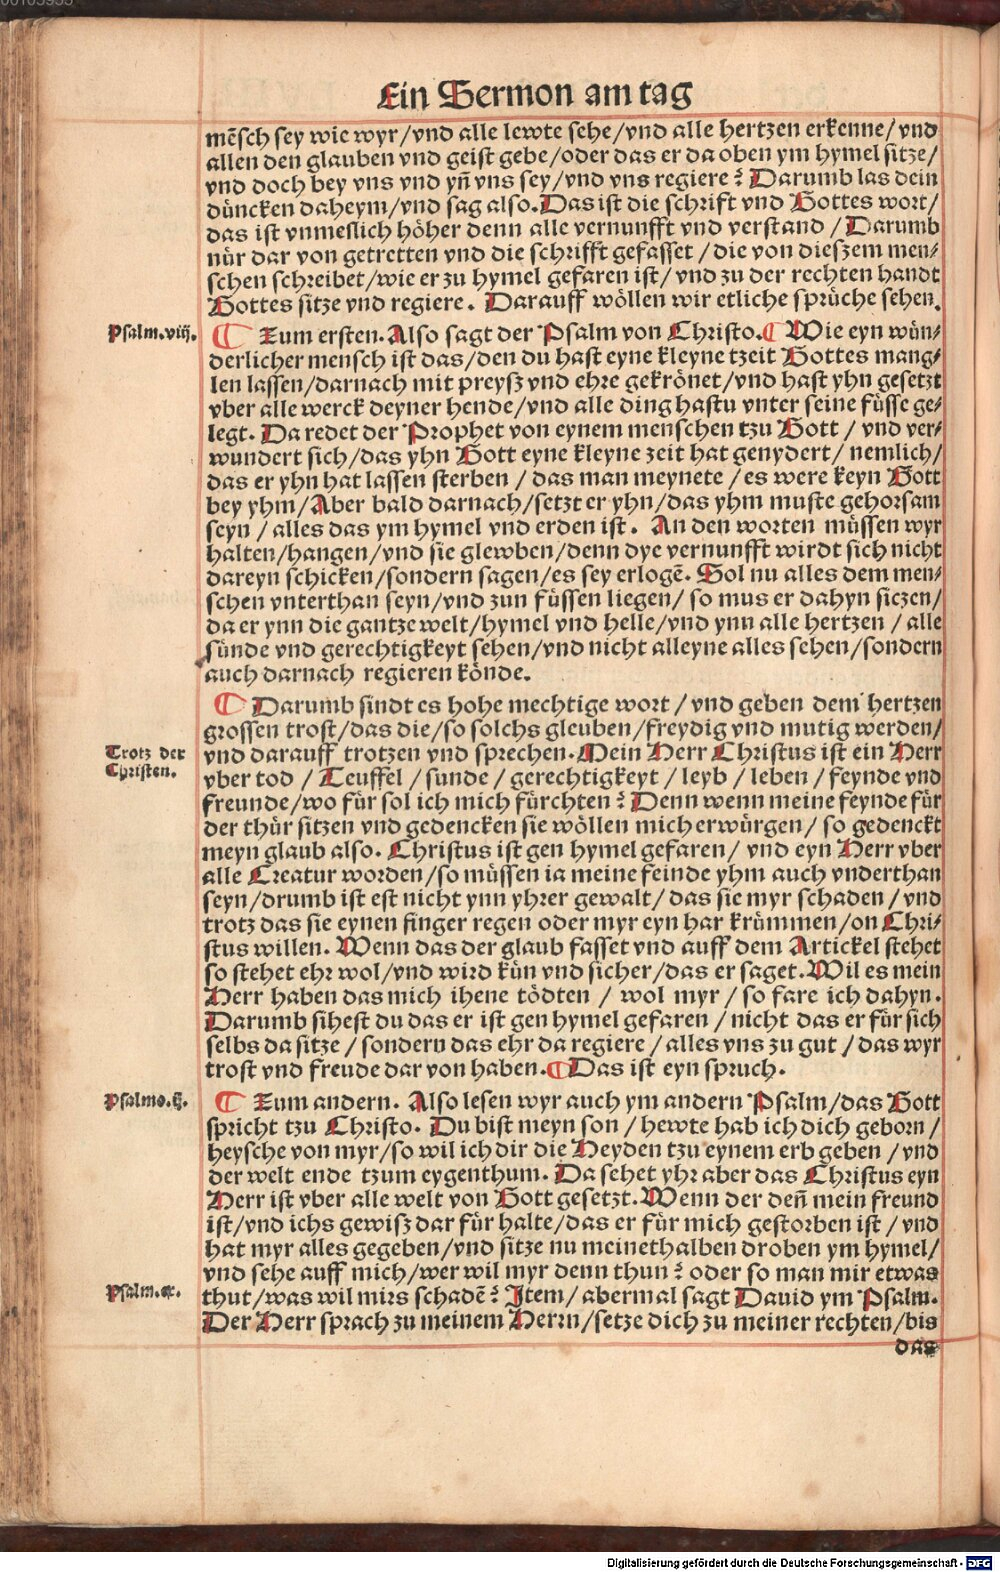 Ein Sermon am tag
mẽsch sey wie wyr/vnd alle lewte sehe/vnd alle hertzen erkenne/vnd
allen den glauben vnd geist gebe/oder das er da oben ym hymel sitze/
vnd doch bey vns vnd yn̄ vns sey/vnd vns regiere? Darumb las dein
düncken daheym/vnd sag also. Das ist die schrift vnd Gottes wort/
das ist vnmeslich höher denn alle vernunfft vnd verstand/Darumb
nür dar von getretten vnd die schrifft gefasset/die von dieszem men⸗
schen schreibet/wie er zu hymel gefaren ist/vnd zu der rechten handt
Gottes sitze vnd regiere. Darauff wöllen wir etliche sprüche sehen.
Psalm.viij.
¶ Zum ersten. Also sagt der Psalm von Christo. ¶ Wie eyn wün⸗
derlicher mensch ist das/den du hast eyne kleyne tzeit Gottes mang⸗
len lassen/darnach mit preysz vnd ehre gekrönet/vnd hast yhn gesetzt
vber alle werck deyner hende/vnd alle ding hastu vnter seine füsse ge⸗
legt. Da redet der Prophet von eynem menschen tzu Gott/vnd ver⸗
wundert sich/das yhn Gott eyne kleyne zeit hat genydert/nemlich/
das er yhn hat lassen sterben/das man meynete/es were keyn Gott
bey yhm/Aber bald darnach/setzt er yhn/das yhm muste gehorsam
seyn/alles das ym hymel vnd erden ist. An den worten müssen wyr
halten/hangen/vnd sie glewben/denn dye vernunfft wirdt sich nicht
dareyn schicken/sondern sagen/es sey erlogē. Sol nu alles dem men⸗
schen vnterthan seyn/vnd zun füssen liegen/so mus er dahyn siczen/
da er ynn die gantze welt/hymel vnd helle/vnd ynn alle hertzen/alle
sünde vnd gerechtigkeyt sehen/vnd nicht alleyne alles sehen/sondern
auch darnach regieren könde.
¶ Darumb sindt es hohe mechtige wort/vnd geben dem hertzen
grossen trost/das die/so solchs gleuben/freydig vnd mutig werden/
Trotz der
Christen.
vnd darauff trotzen vnd sprechen. Mein Herr Christus ist ein Herr
vber tod/Teuffel/sunde/gerechtigkeyt/leyb/leben/feynde vnd
freunde/wo für sol ich mich fürchten? Denn wenn meine feynde für
der thür sitzen vnd gedencken sie wöllen mich erwürgen/so gedenckt
meyn glaub also. Christus ist gen hymel gefaren/vnd eyn Herr vber
alle Creatur worden/so müssen ia meine feinde yhm auch vnderthan
seyn/drumb ist est nicht ynn yhrer gewalt/das sie myr schaden/vnd
trotz das sie eynen finger regen oder myr eyn har krümmen/on Chri⸗
stus willen. Wenn das der glaub fasset vnd auff dem Artickel stehet
so stehet ehr wol/vnd wird kün vnd sicher/das er saget. Wil es mein
Herr haben das mich ihene tödten/wol myr/so fare ich dahyn.
Darumb sihest du das er ist gen hymel gefaren/nicht das er für sich
selbs da sitze/sondern das ehr da regiere/alles vns zu gut/das wyr
trost vnd freude dar von haben. ¶ Das ist eyn spruch.
Psalmo.ij.
¶ Zum andern. Also lesen wyr auch ym andern Psalm/das Gott
spricht tzu Christo. Du bist meyn son/hewte hab ich dich geborn/
heysche von myr/so wil ich dir die Heyden tzu eynem erb geben/vnd
der welt ende tzum eygenthum. Da sehet yhr aber das Christus eyn
Herr ist vber alle welt von Gott gesetzt. Wenn der den̄ mein freund
ist/vnd ichs gewisz dar für halte/das er für mich gestorben ist/vnd
hat myr alles gegeben/vnd sitze nu meinethalben droben ym hymel/
vnd sehe auff mich/wer wil myr denn thun? oder so man mir etwas
Psalm.cx.
thut/was wil mirs schadē? Item/abermal sagt Dauid ym Psalm.
Der Herr sprach zu meinem Herrn/setze dich zu meiner rechten/bis
das
Digitalisierung gefördert durch die Deutsche Forschungsgemeinschaft - DFG